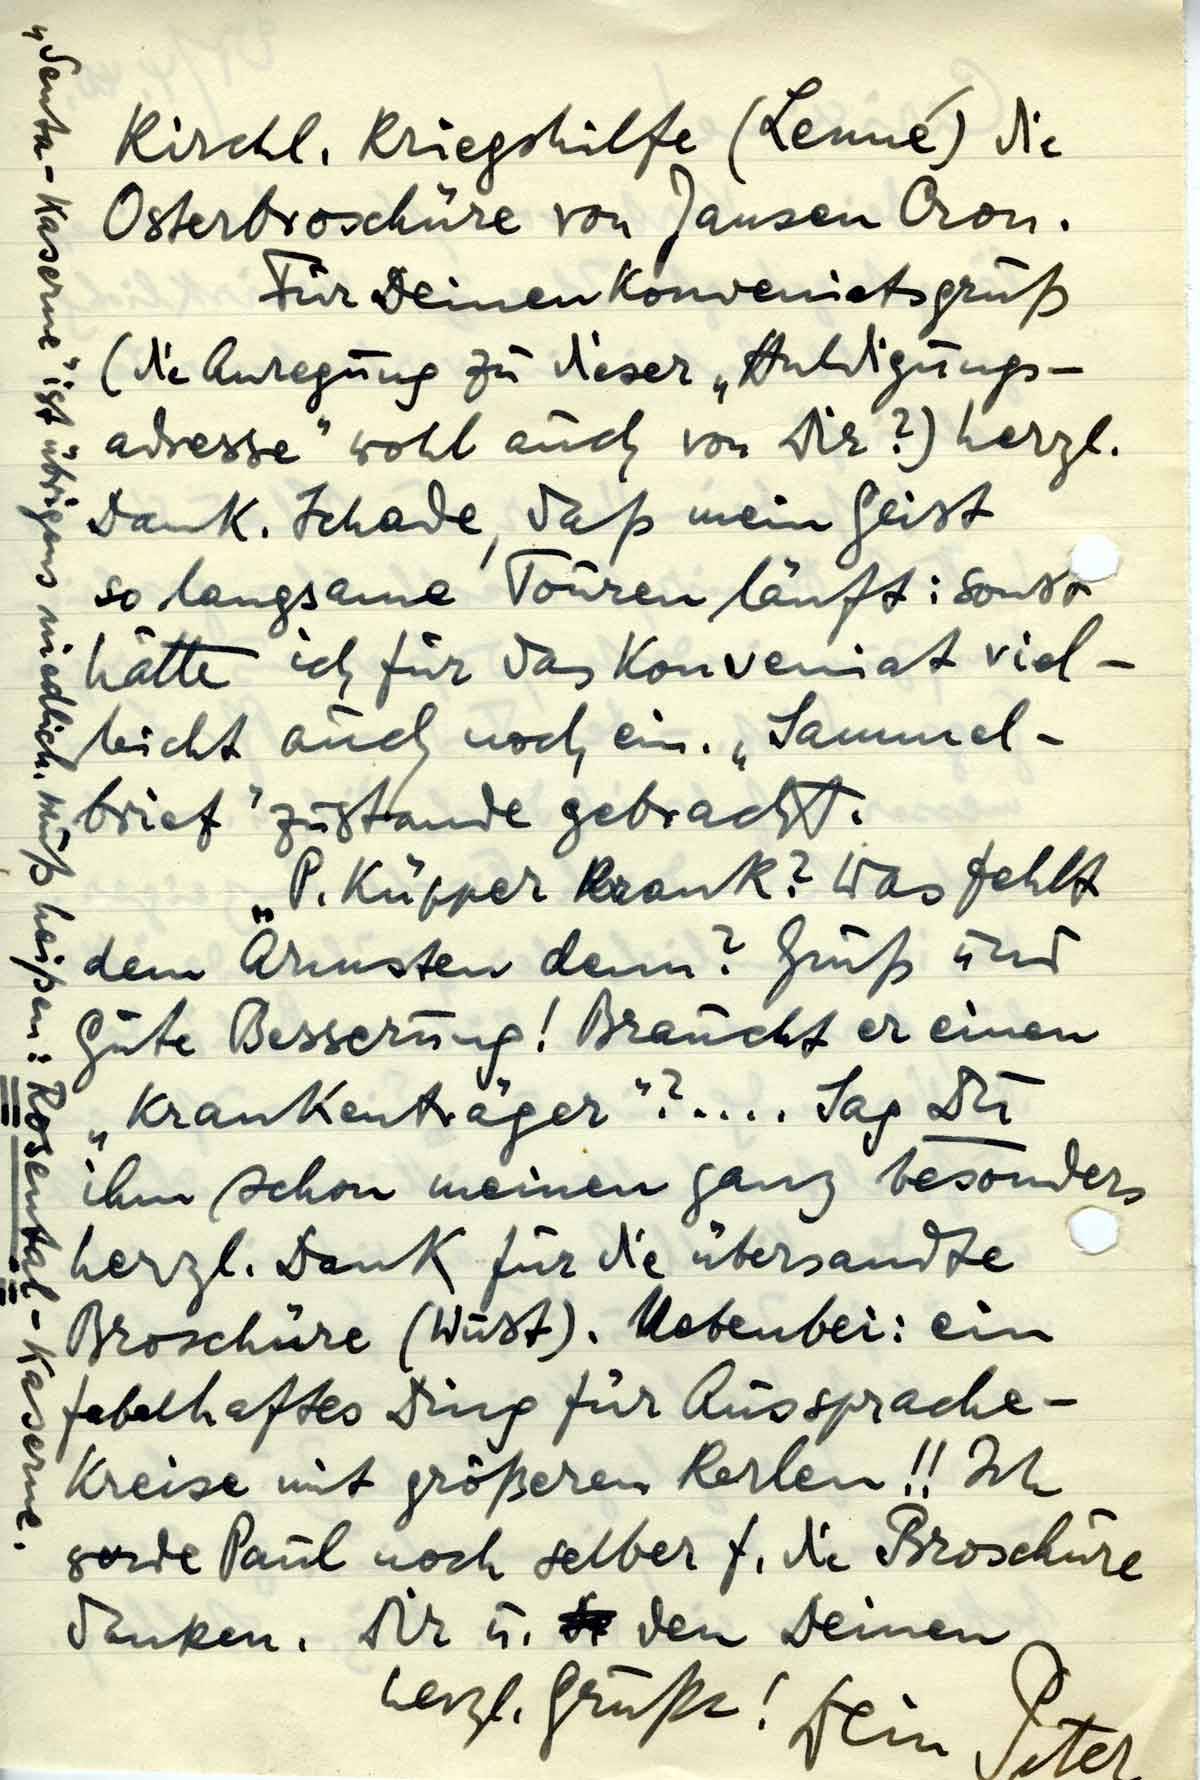 Kirchl. Kriegshilfe (Lenné) die
Osterbroschüre von Jansen Cron.
Für Deinen Konveniatsgruß
(die Anregung zu dieser „Huldigungs-
adresse" wohl auch von Dir?) herzl.
Dank. Schade, daß mein Geist
so langsame Touren läuft: sonst
hätte ich für das Konveniat viel-
leicht auch noch ein. „Sammel-
brief" zustande gebracht.
P. Küpper krank? Was fehlt
dem Ärmsten denn? Gruß und
Gute Besserung! Braucht er einen
„Krankenträger"?.... Sag Du
ihm schon meinen ganz besonders
herzl. Dank für die übersandte
Broschüre (Wust). Nebenbei: ein
fabelhaftes Ding für Aussprache-
Kreise mit größeren Kerlen!! Ich
werde Paul noch selber f. die Broschüre
danken. Dir u. den Deinen
herzl. Grüße! Dein Peter
„Senta-Kaserne" ist übrigens niedlich. Muß heißen: Rosental-Kaserne.